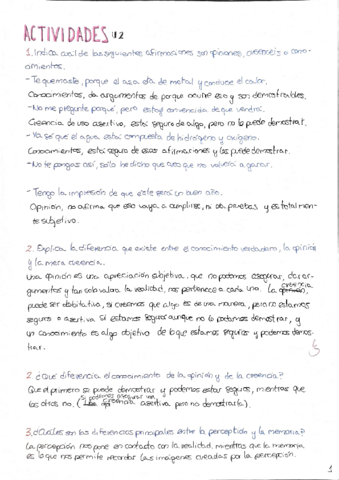 ACTIVIDADES U.2
1. Indica cuál de las siguientes afirmaciones son opiniones, creencias o cono-
cimientos.
- Te quemaste, porque el asa era de metal y conduce el calor.
Conocimientos, da argumentos de porque ocurre eso y son demostrables.
- No me pregunte porqué, pero estoy convencida de que vendrá.
Creencia de uso asertivo, está seguro de algo, pero no lo puede demostrar.
- Ya sé que el agua está compuesta de hidrógeno y oxígeno.
Conocimientos, está seguro de esas afirmaciones y las puede demostrar.
- No te pongas así, sólo he dicho que creo que no volverás a ganar.
- Tengo la impresión de que este será un buen año.
Opinión, no afirma que eso vaya a cumplirse, ni da pruebas y es total men-
te subjetivo.
2. Explica la diferencia que existe entre el conocimiento verdadero, la opinión
y la mera creencia.
Una opinión es una apreciación subjetiva, que no podemos asegurar, dar ar-
gumentos y tan solo valora la realidad, nos pertenece a cada uno. La creencia
puede ser dubitativa, si creemos que algo es de una manera, pero no estamos
seguros o asertiva si estamos seguros aunque no lo podemos demostrar, y
un conocimiento es algo objetivo de lo que estamos seguros y podemos demos-
trar.
2. ¿Qué diferencia el conocimiento de la opinión y de la creencia?
Que el primero se puede demostrar y podemos estar seguros, mientras que
las otras no. (si podemos asegurar una creencia asertiva pero no demostrarla).
3. ¿Cuáles son las diferencias principales entre la percepción y la memoria?
La percepción nos pone en contacto con la realidad, mientras que la memoria
es lo que nos permite recordar las imágenes creadas por la percepción.
1